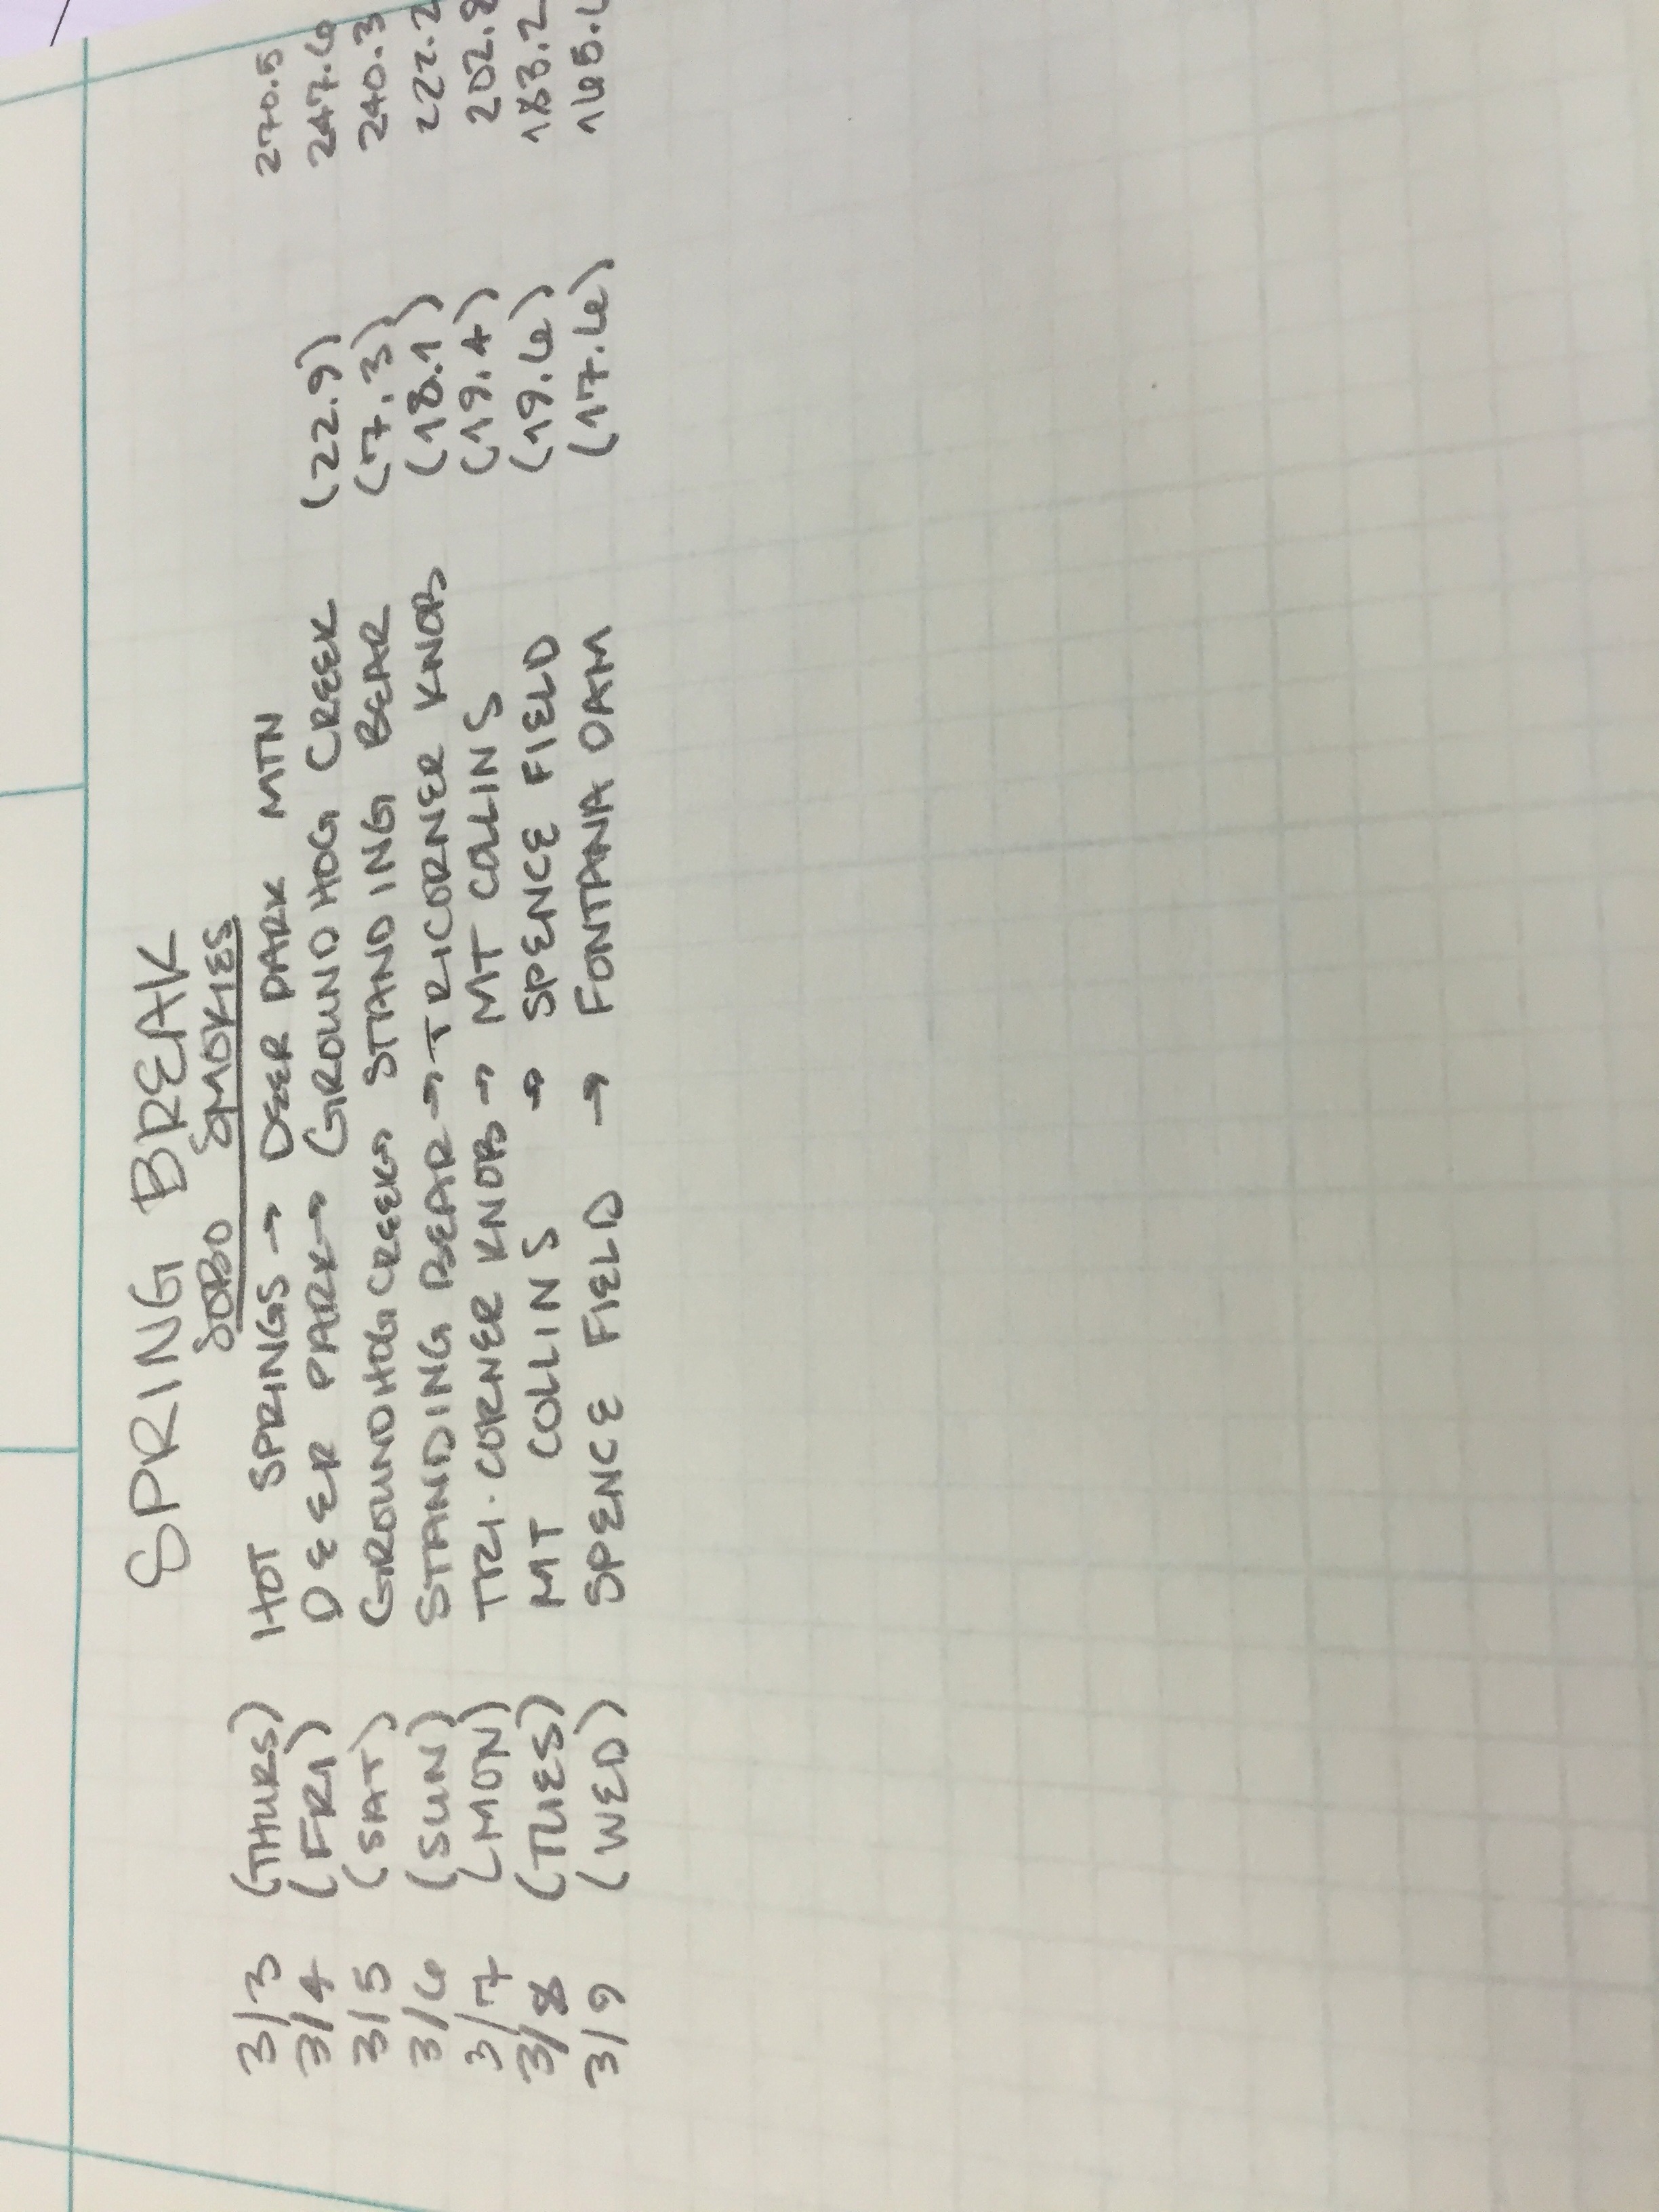 SPRING BREAK
SOBO SMOKIES
3/3 (THURS) HOT SPRINGS → DEER PARK MTN 270.5
3/4 (FRI) DEER PARK → GROUNDHOG CREEK (22.9) 247.6
3/5 (SAT) GROUNDHOG CREEK → STANDING BEAR (7.3) 240.3
3/6 (SUN) STANDING BEAR → TRICORNER KNOB (18.1) 222.2
3/7 (MON) TRI-CORNER KNOB → MT COLLINS (19.4) 202.8
3/8 (TUES) MT COLLINS → SPENCE FIELD (19.6) 183.2
3/9 (WED) SPENCE FIELD → FONTANA DAM (17.6) 165.